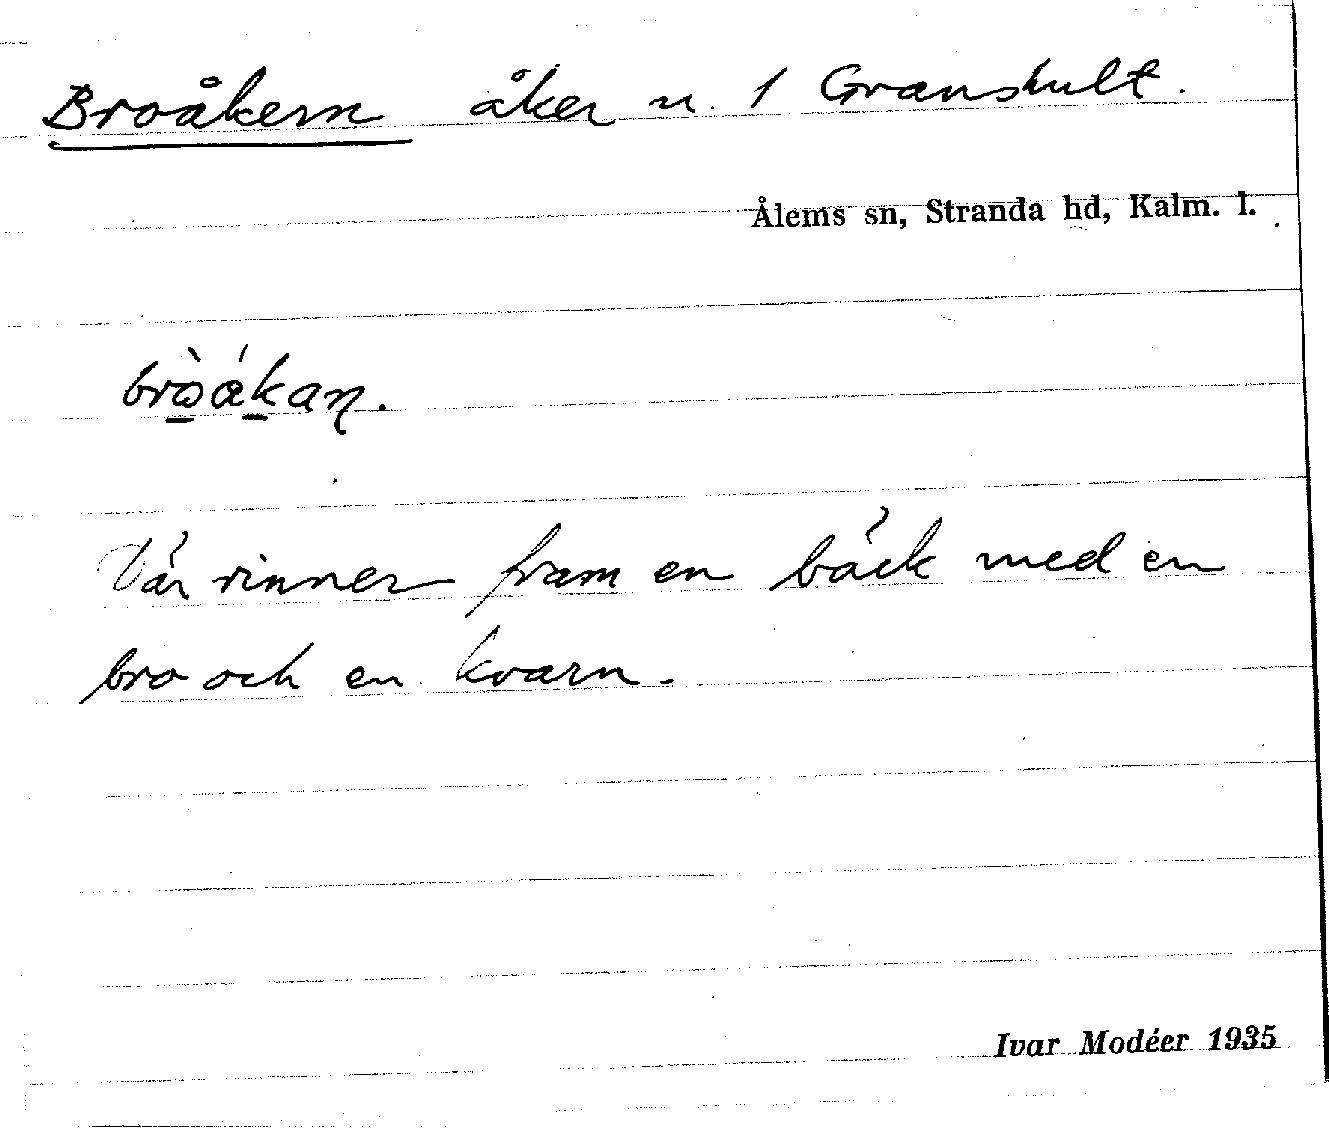 Broåkern åker n. 1 Granshult.
Ålems sn, Stranda hd, Kalm. l.
Där rinner fram en bäck med en
bro och en kvarn.
Ivar Modéer 1935